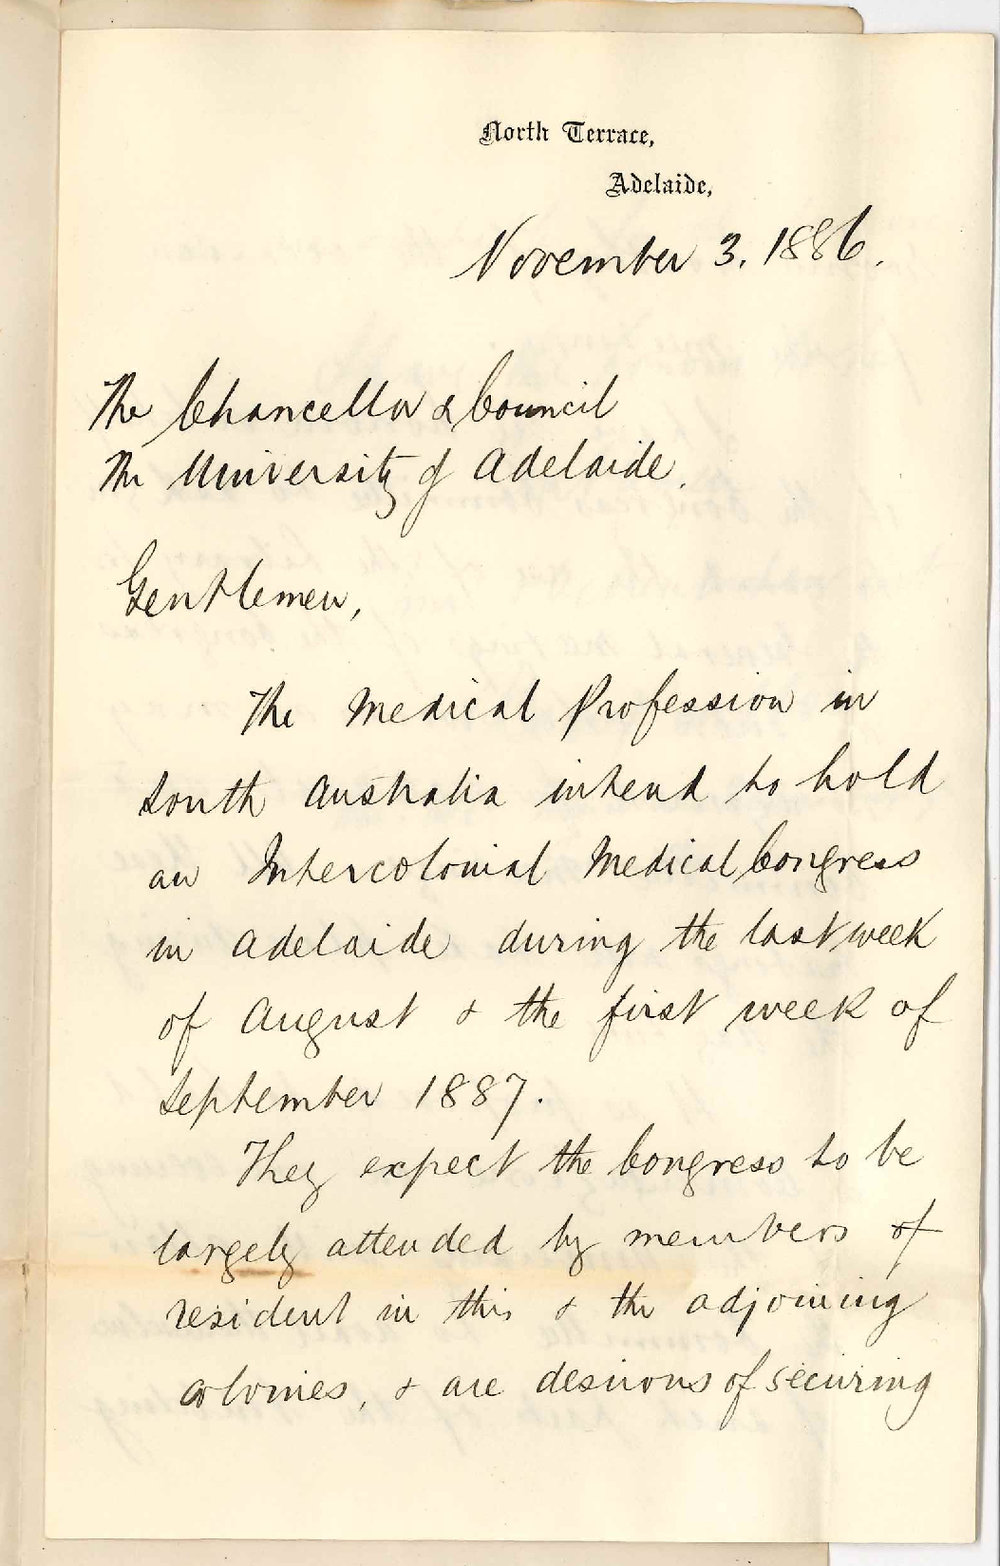 North Terrace,
Adelaide,
November 3. 1886.
The Chancellor & Council
The University of Adelaide.
Gentlemen,
The Medical Profession in
South Australia intend to hold
an Intercolonial Medical Congress
in Adelaide during the last week
of August & the first week of
September 1887.
They expect the Congress to be
largely attended by members of
resident in this & the adjoining
colonies, & are desirous of securing